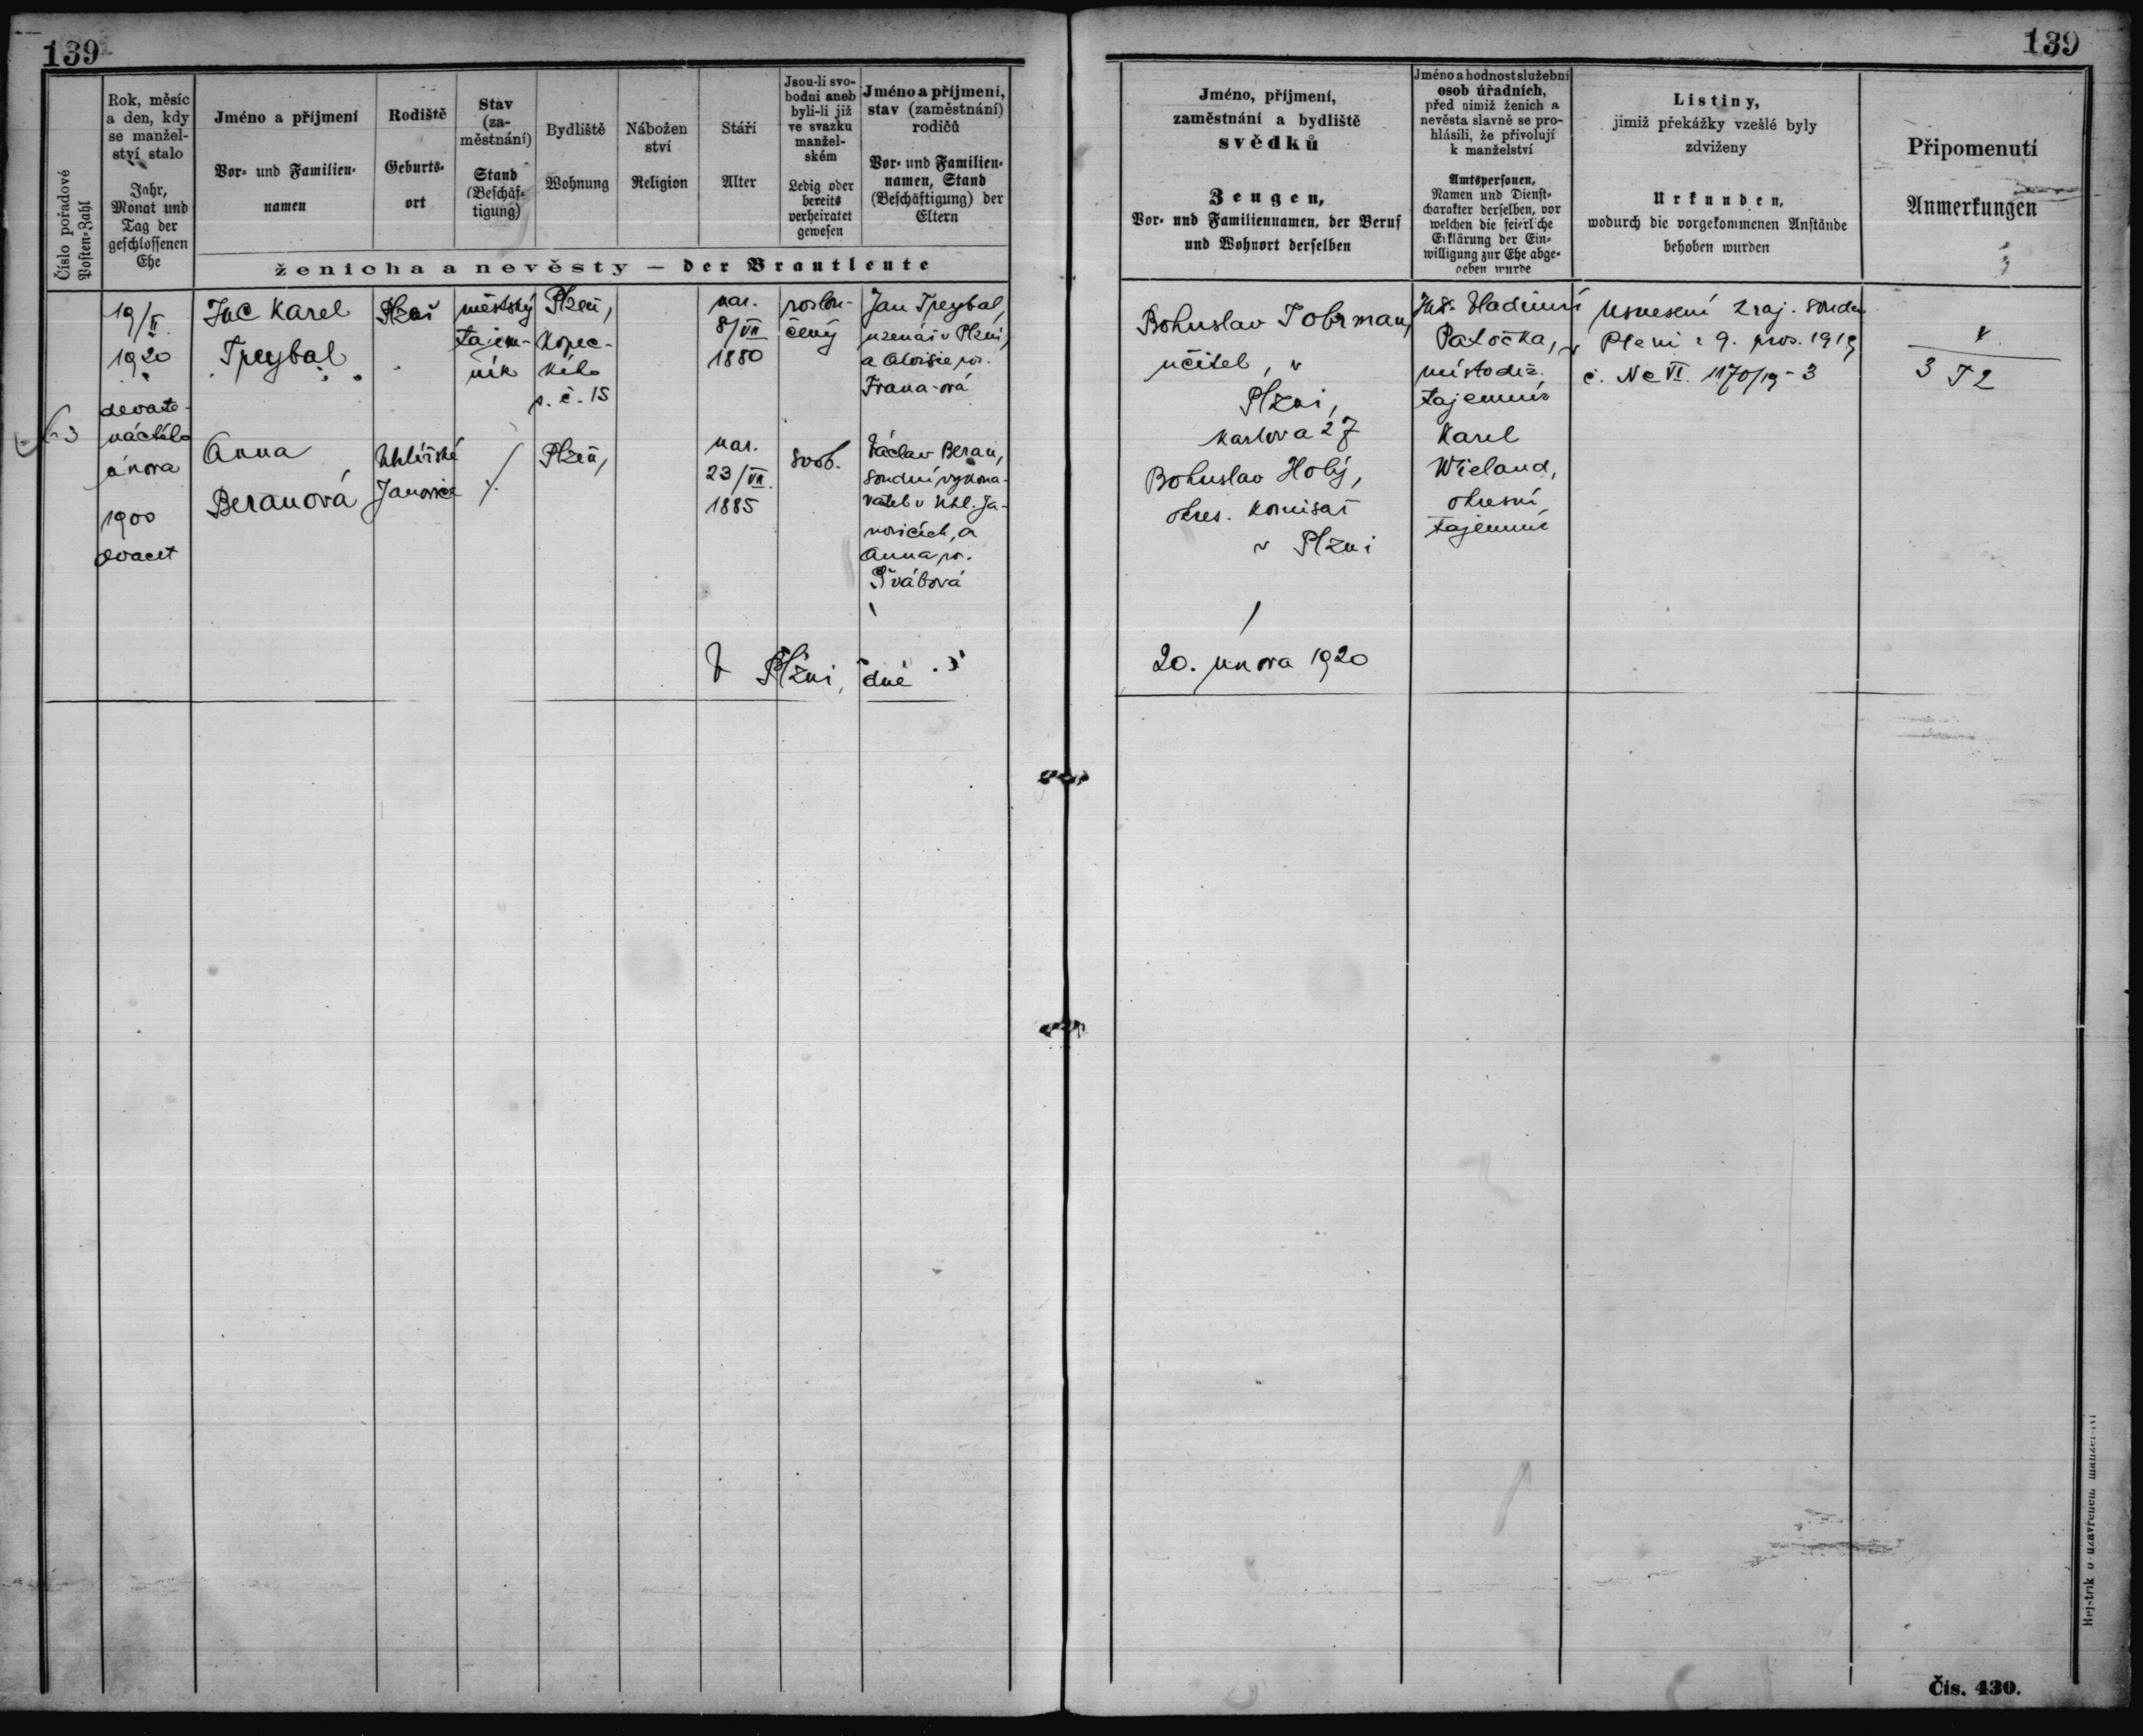 139
139
Číslo pořadové
Posten-Zahl
Rok, měsíc
a den, kdy
se manžel-
ství stalo
Jahr,
Monat und
Tag der
geschlossenen
Ehe
Jméno a příjmení
Vor- und Familien-
namen
Rodiště
Geburts-
ort
Stav
(za-
městnání)
Stand
(Beschäf-
tigung)
Bydliště
Wohnung
Nábožen
ství
Religion
Stáří
Alter
Jsou-li svo-
bodni aneb
byli-li již
ve svazku
manžel-
ském
Ledig oder
bereits
verheiratet
gewesen
Jméno a příjmení,
stav (zaměstnání)
rodičů
Vor- und Familien-
namen, Stand
(Beschäftigung) der
Eltern
ženicha a nevěsty — der Brautleute
Jméno, příjmení,
zaměstnání a bydliště
svědků
Zeugen,
Vor- und Familiennamen, der Beruf
und Wohnort derselben
Jméno a hodnost služební
osob úřadních,
před nimiž ženich a
nevěsta slavně se pro-
hlásili, že přivolují
k manželství
Amtspersonen,
Namen und Dienst-
charakter derselben, vor
welchen die feierliche
Erklärung der Ein-
willigung zur Ehe abge-
geben wurde
Listiny,
jimiž překážky vzešlé byly
zdviženy
Urkunden,
wodurch die vorgekommenen Anstände
behoben wurden
Připomenutí
Anmerkungen
19/II.
1920
devate-
náctého
února
1900
dvacet
Karel
Treybal
Plzeň
městský
tajem-
ník
Plzeň,
Kopec-
kého
s. č. 15
nar.
8/VII
1880
rozlou-
čený
Jan Treybal,
uzenář v Plzni,
a Aloisie, roz.
Frana-ová
Anna
Beranová
Uhlířské
Janovice
Plzeň,
nar.
23/VII.
1885
svob.
Václav Beran,
soudní vykona-
vatel v Uhl. Ja-
novicích, a
Anna, roz.
Švábová
V Plzni, dne
Bohuslav Tobrman,
učitel, v
Plzni,
Karlova 27
Bohuslav Holý,
okres. komisař
v Plzni
20. února 1920
Vladimír
Patočka,
místodrž.
tajemník
Karel
Wieland,
okresní
tajemník
Usnesení kraj. soudu
v Plzni z 9. pros. 1919
č. Nc VI. 1170/19-3
3 T 2
Rejstřík o uzavřeném manželství
Čís. 430.